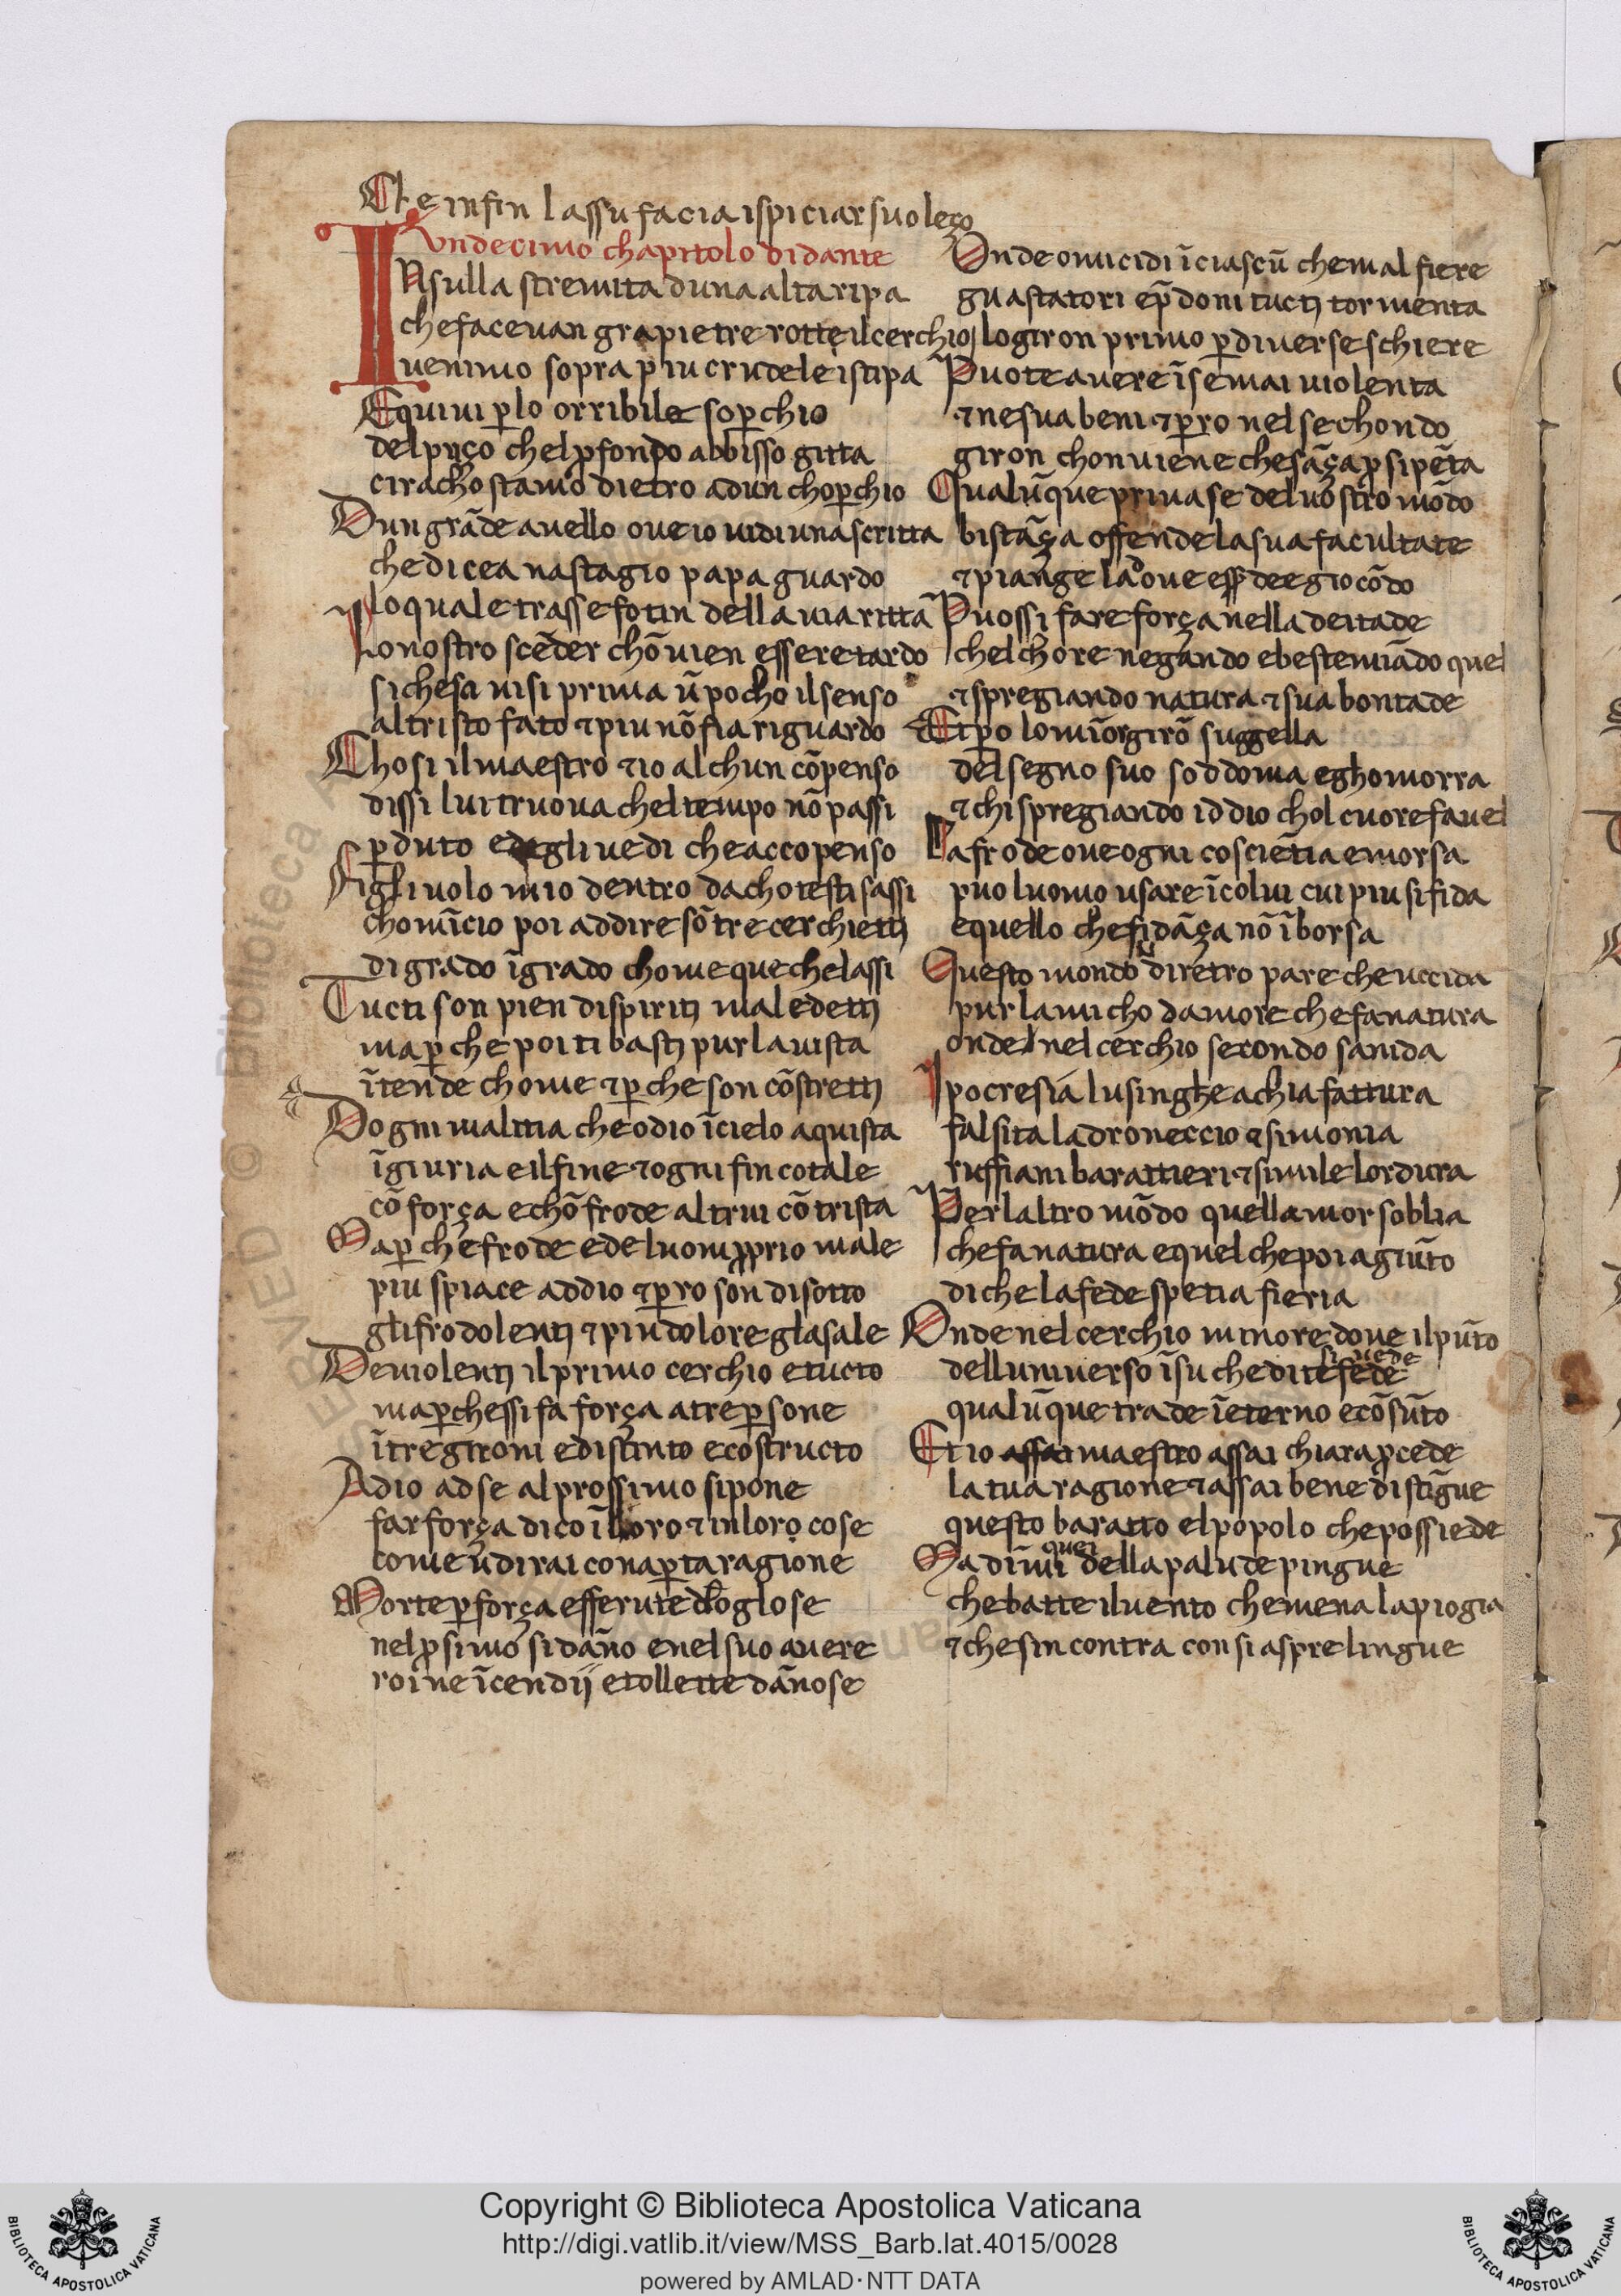 Che infin lassu facia ispiciar suo lezo
Undecimo chapitolo di dante
INsulla stremita duna alta ripa
che facevan gra pietre rotte il cerchio
venimo sopra piu crudele istipa
Equivi p̱lo orribile sop̱chio
del puço chel ꝓfondo abbisso gitta
ci rachostamo dietro adun chop̱chio
Dun grãde avello ove io vidi una scritta
che dicea nastagio papa guardo
lo quale trasse fotin della via ritta
Lo nostro scẽder chõvien essere tardo
si che sa usi prima ũ pocho il senso
al tristo fato ⁊ piu nõ fia riguardo
Chosi il maestro ⁊ io alchun cõpenso
dissi lui truova chel tempo nõ passi
p̱duto ed egli vedi che accio penso
Figlivolo mio dentro da chotesti sassi
chomĩcio poi addire sõ tre cerchietti
di grado ĩ grado chome que che lassi
Tucti son pien di spiriti maledetti
ma p̱che poi ti basti pur la vista
ĩtende chome ⁊ p̱che son cõstretti
Dogni malitia che odio ĩ cielo aquista
ĩgiuria e il fine ⁊ ogni fin cotale
cõ força e chõ frode altrui cõtrista
Ma p̱che frode e de luom ꝓprio male
piu spiace addio ⁊ p̱ro son di sotto
gli frodolenti ⁊ piu dolore gl asale
De violenti il primo cerchio e tucto
ma p̱chessi fa força a tre p̱sone
ĩ tre gironi e distinto e costructo
A dio ad se al prossimo si pone
far força dico ĩ lloro ⁊ in loro cose
come udirai con ap̱ta ragione
Morte p̱ força e ferute doglose
nel ꝓsimo si dãno e nel suo avere
roine ĩcendij e tollette dãnose
Onde omicidi ĩ ciascũ che mal fiere
guastatori e p̃doni tucti tormenta
lo giron primo p̱ diverse schiere
Puote avere ĩ se mai violenta
⁊ ne sua beni ⁊ p̱ro nel sechondo
giron chonviene che sãça ꝓ si pẽta
Qualũque priva se del vostro mõdo
biscãça ⁊ offende la sua facultate
⁊ piange la dove ess̱ dee giocõdo
Puossi fare força nella deitade
chel chore negando e bestemiãdo quel
⁊ spregiando natura ⁊ sua bontade
Et p̱o lo mĩor girõ suggella
del segno suo soddoma e ghomorra
⁊ chi spregiando iddio chol cuore favel
La frode ove ogni cosciẽtia e morsa
puo luomo usare ĩ colui cui piu si fida
e quello che fidãça nõ ĩborsa
Questo mondo diretro pare che uccida
pur lamicho damore che fa natura
onde nel cerchio secondo sanida
Ipocresia lusinghe a chia fattura
falsita ladroneccio ⁊ simonia
ruffiani barattieri ⁊ simile lordura
Per laltro mõdo quell amor soblia
che fa natura e quel che poi agiũto
di che la fede spetia fieria
Onde nel cerchio minore dove il pũto
si vede
delluniverso ĩ su che dite fede
qualũque trade ĩ eterno e cõsũto
Et io assai maestro assai chiara ꝓcede
la tua ragione ⁊ assai bene distĩgue
questo baratto el popolo che possiede
quei
Ma dĩmi della palude pingue
che batte il vento che mena la piogia
⁊ che sincontra con si aspre lingue
Copyright © Biblioteca Apostolica Vaticana
http://digi.vatlib.it/view/MSS_Barb.lat.4015/0028
powered by AMLAD·NTT DATA
BIBLIOTECA APOSTOLICA VATICANA
BIBLIOTECA APOSTOLICA VATICANA